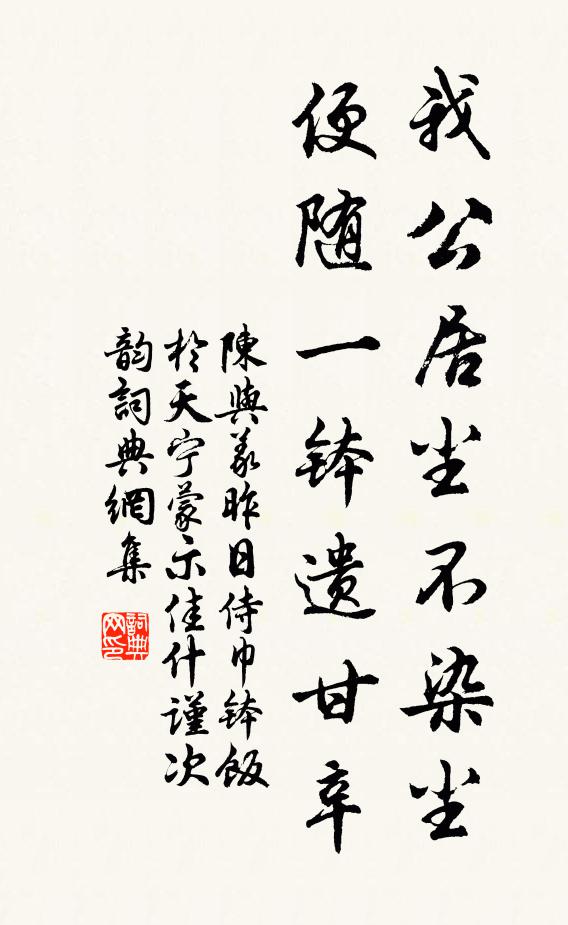 我公居尘不染尘
便随一钵遗甘辛
陳與義昨日侍巾钵飯
於天宁蒙示佳什謹次
韵詞典網集
詞典
网印